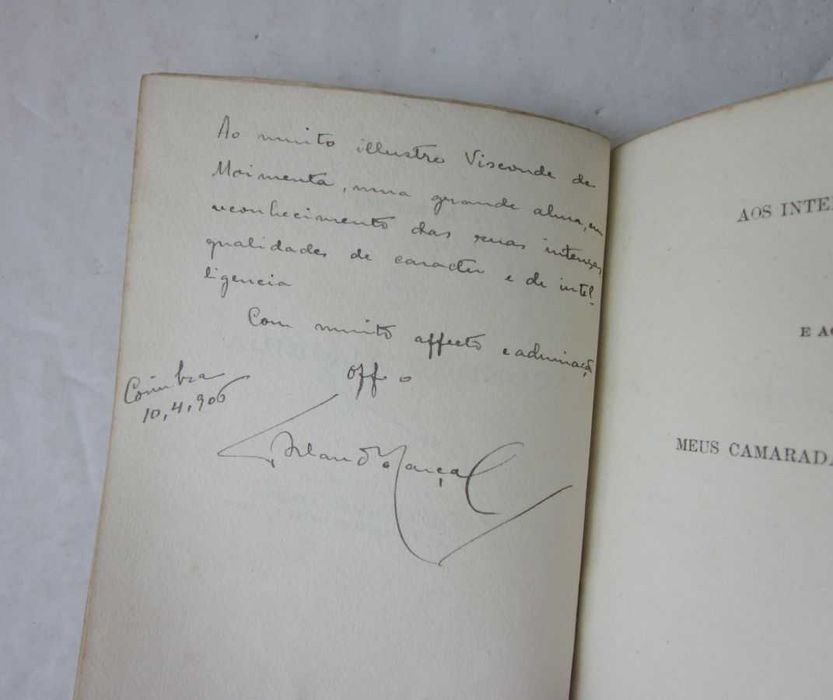 Ao muito illustre Visconde de
Moimenta, uma grande alma, em
reconhecimento das suas intensas
qualidades de caracter e de intel-
ligencia
Com muito affecto e admiração
Off o
Coimbra
10, 4, 906
Orlando Marçal
AOS INTE
E AO
MEUS CAMARADA